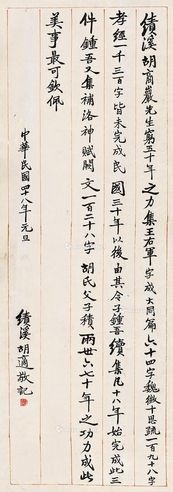 績溪胡商巖先生窮五十年之力集王右軍字成大同篇六十四字魏徵十思疏一百九十八字
孝經一千三百字皆未完成民國三十年以後由其令子鍾吾續集凡十八年始完成此三
件鍾吾又集補洛神賦闕文一百二十八字胡氏父子積兩世六七十年之功力成此
美事最可欽佩
中華民國四十八年元旦
績溪胡適敬記